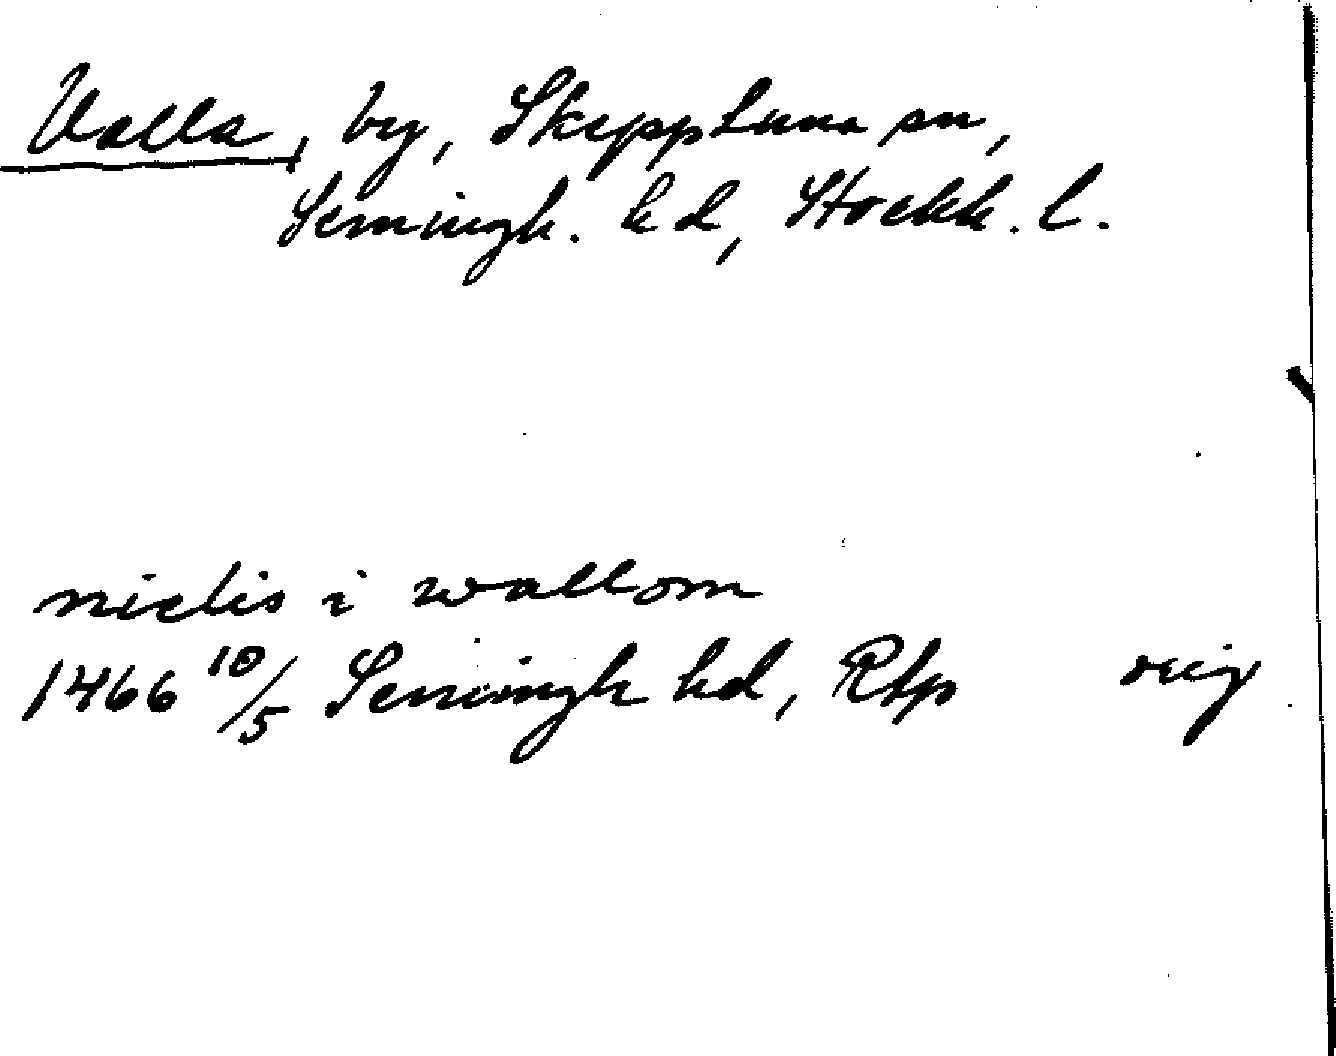 Valla, by, Skepptuna sn,
Semingh. hd, Stockh. l.
nielis i wallom
1466 10/5 Semingh hd, Rfp orig